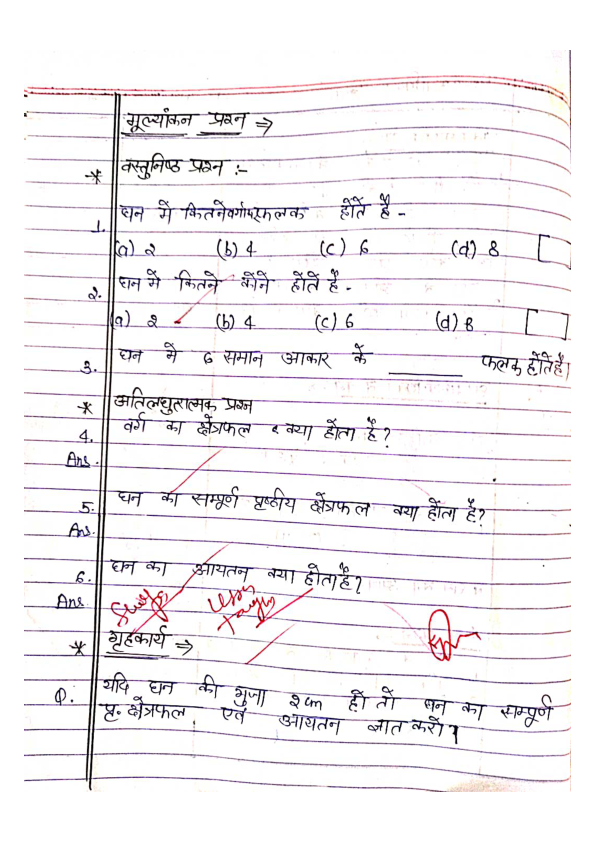 मूल्यांकन प्रश्न ⇒
* वस्तुनिष्ठ प्रश्न :-
1. घन में कितने वर्गाकार फलक होतें है -
(a) २ (b) 4 (c) 6 (d) 8
2. घन में कितने कोने होतें है -
(a) २ (b) 4 (c) 6 (d) 8
3. घन में 6 समान आकार के ______ फलक होतेंहै।
* अतिलघुरात्मक प्रश्न
4. वर्ग का क्षेत्रफल क्या होंता है?
Ans.
5. घन का सम्पूर्ण प्रष्ठीय क्षेत्रफल क्या होंता है?
Ans.
6. घन का आयतन क्या होताहै?
Ans
* गृहकार्य ⇒
Q. यदि घन की भुजा 2cm हो तो घन का सम्पूर्ण
पृ. क्षेत्रफल एवं आयतन ज्ञात करो?